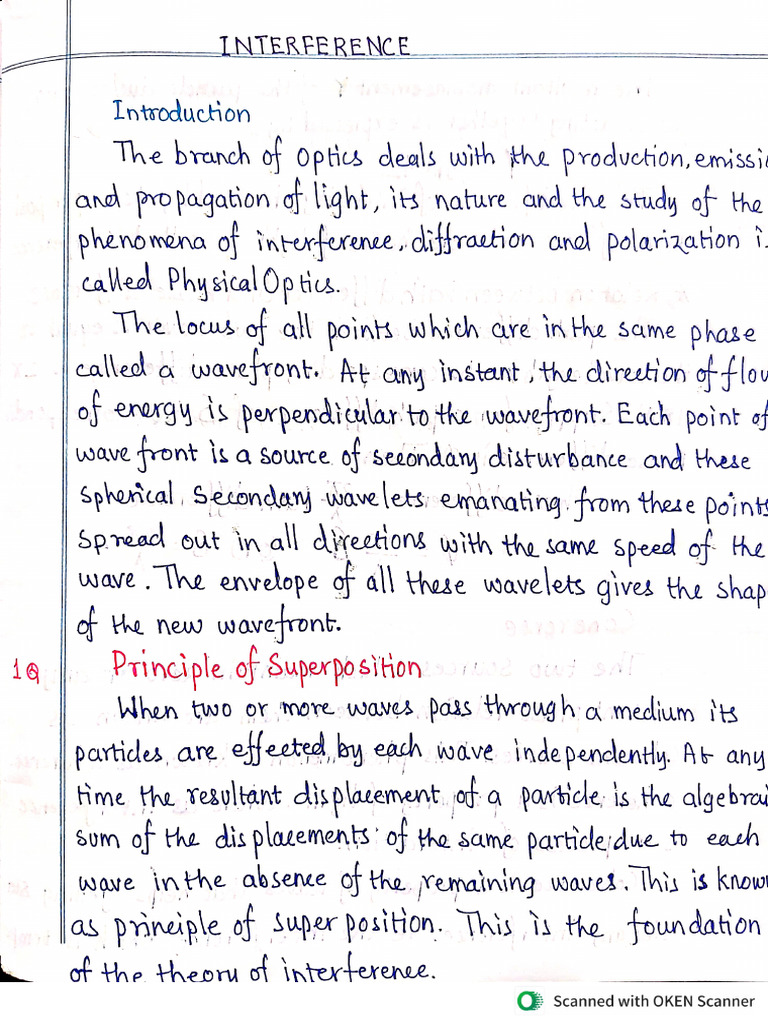 INTERFERENCE
Introduction
The branch of optics deals with the production, emissi
and propagation of light, its nature and the study of the
phenomena of interference, diffraction and polarization i
called Physical Optics.
The locus of all points which are in the same phase
called a wavefront. At any instant, the direction of flow
of energy is perpendicular to the wavefront. Each point of
wavefront is a source of secondary disturbance and these
spherical secondary wavelets emanating from these points
spread out in all directions with the same speed of the
wave. The envelope of all these wavelets gives the shap
of the new wavefront.
1Q Principle of Superposition
When two or more waves pass through a medium its
particles are effected by each wave independently. At any
time the resultant displacement of a particle is the algebrai
sum of the displacements of the same particle due to each
wave in the absence of the remaining waves. This is know
as principle of superposition. This is the foundation
of the theory of interference.
Scanned with OKEN Scanner